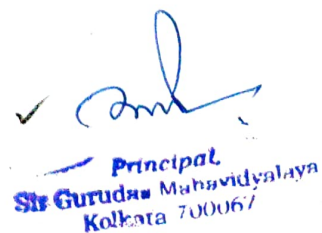 Principal
Sir Gurudas Mahavidyalaya
Kolkata 700067